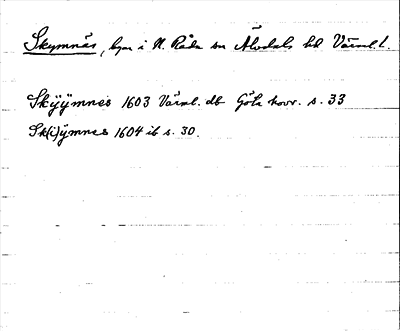 Skymnäs, byn i N. Råda sn Älvdals hd Värml. l.
Skÿÿmnes 1603 Värml. db Göta hovr. s. 33
Sk(i)ÿmnes 1604 ib s. 30.